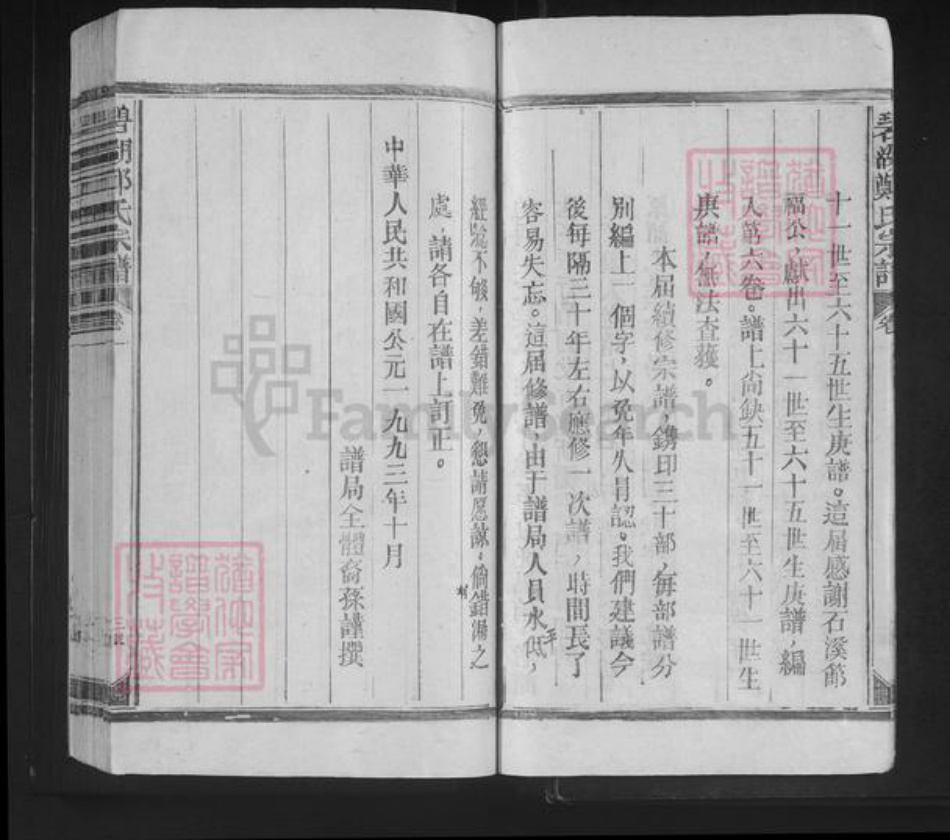 十一世至六十五世生庚譜。這屆感謝石溪節
福公，獻出六十一世至六十五世生庚譜，編
入第六卷。譜上尚缺五十一世至六十一世生
庚譜，無法查獲。
本屆續修宗譜，鐫印三十部，每部譜分
別編上一個字，以免年久冐認。我們建議今
後每隔三十年左右應修一次譜，時間長了
容易失忘。這屆修譜，由于譜局人員水平低，
經驗不够，差錯難免，懇請愿諒。倘錯漏之
處，請各自在譜上訂正。
中華人民共和國公元一九九三年十月
譜局全體裔孫謹撰
鄭氏宗譜
卷
氏宗譜
卷
FamilySearch
譜學會
收藏
譜學會
收藏